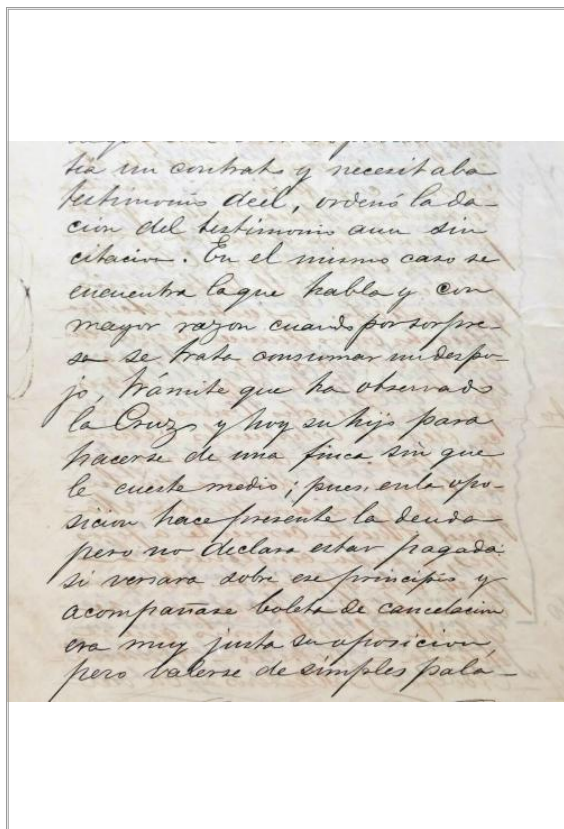 tía un contrato y necesitaba
testimonio deél, ordenó la da-
cion del testimonio aun sin
citacion. En el mismo caso se
encuentra la que habla y con
mayor razon cuando por sorpre-
sa se trata consumar un despo-
jo, trámite que ha observado
la Cruz y hoy su hijo para
hacerse de una finca sin que
le cueste medio; pues, en la opo-
sicion hace presente la deuda
pero no declara estar pagada:
si versara sobre ese principio y
acompañase boleta de cancelacion
era muy justa su oposicion,
pero valerse de simples pala-